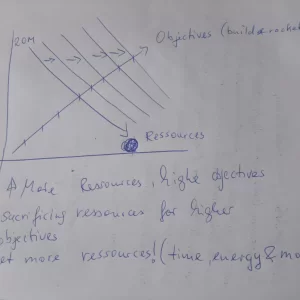 20M
Objectives (build a rocket
Ressources
More Ressources, highe objectives
sacrificing ressources for higher
objectives
et more ressources! (time energy & mo